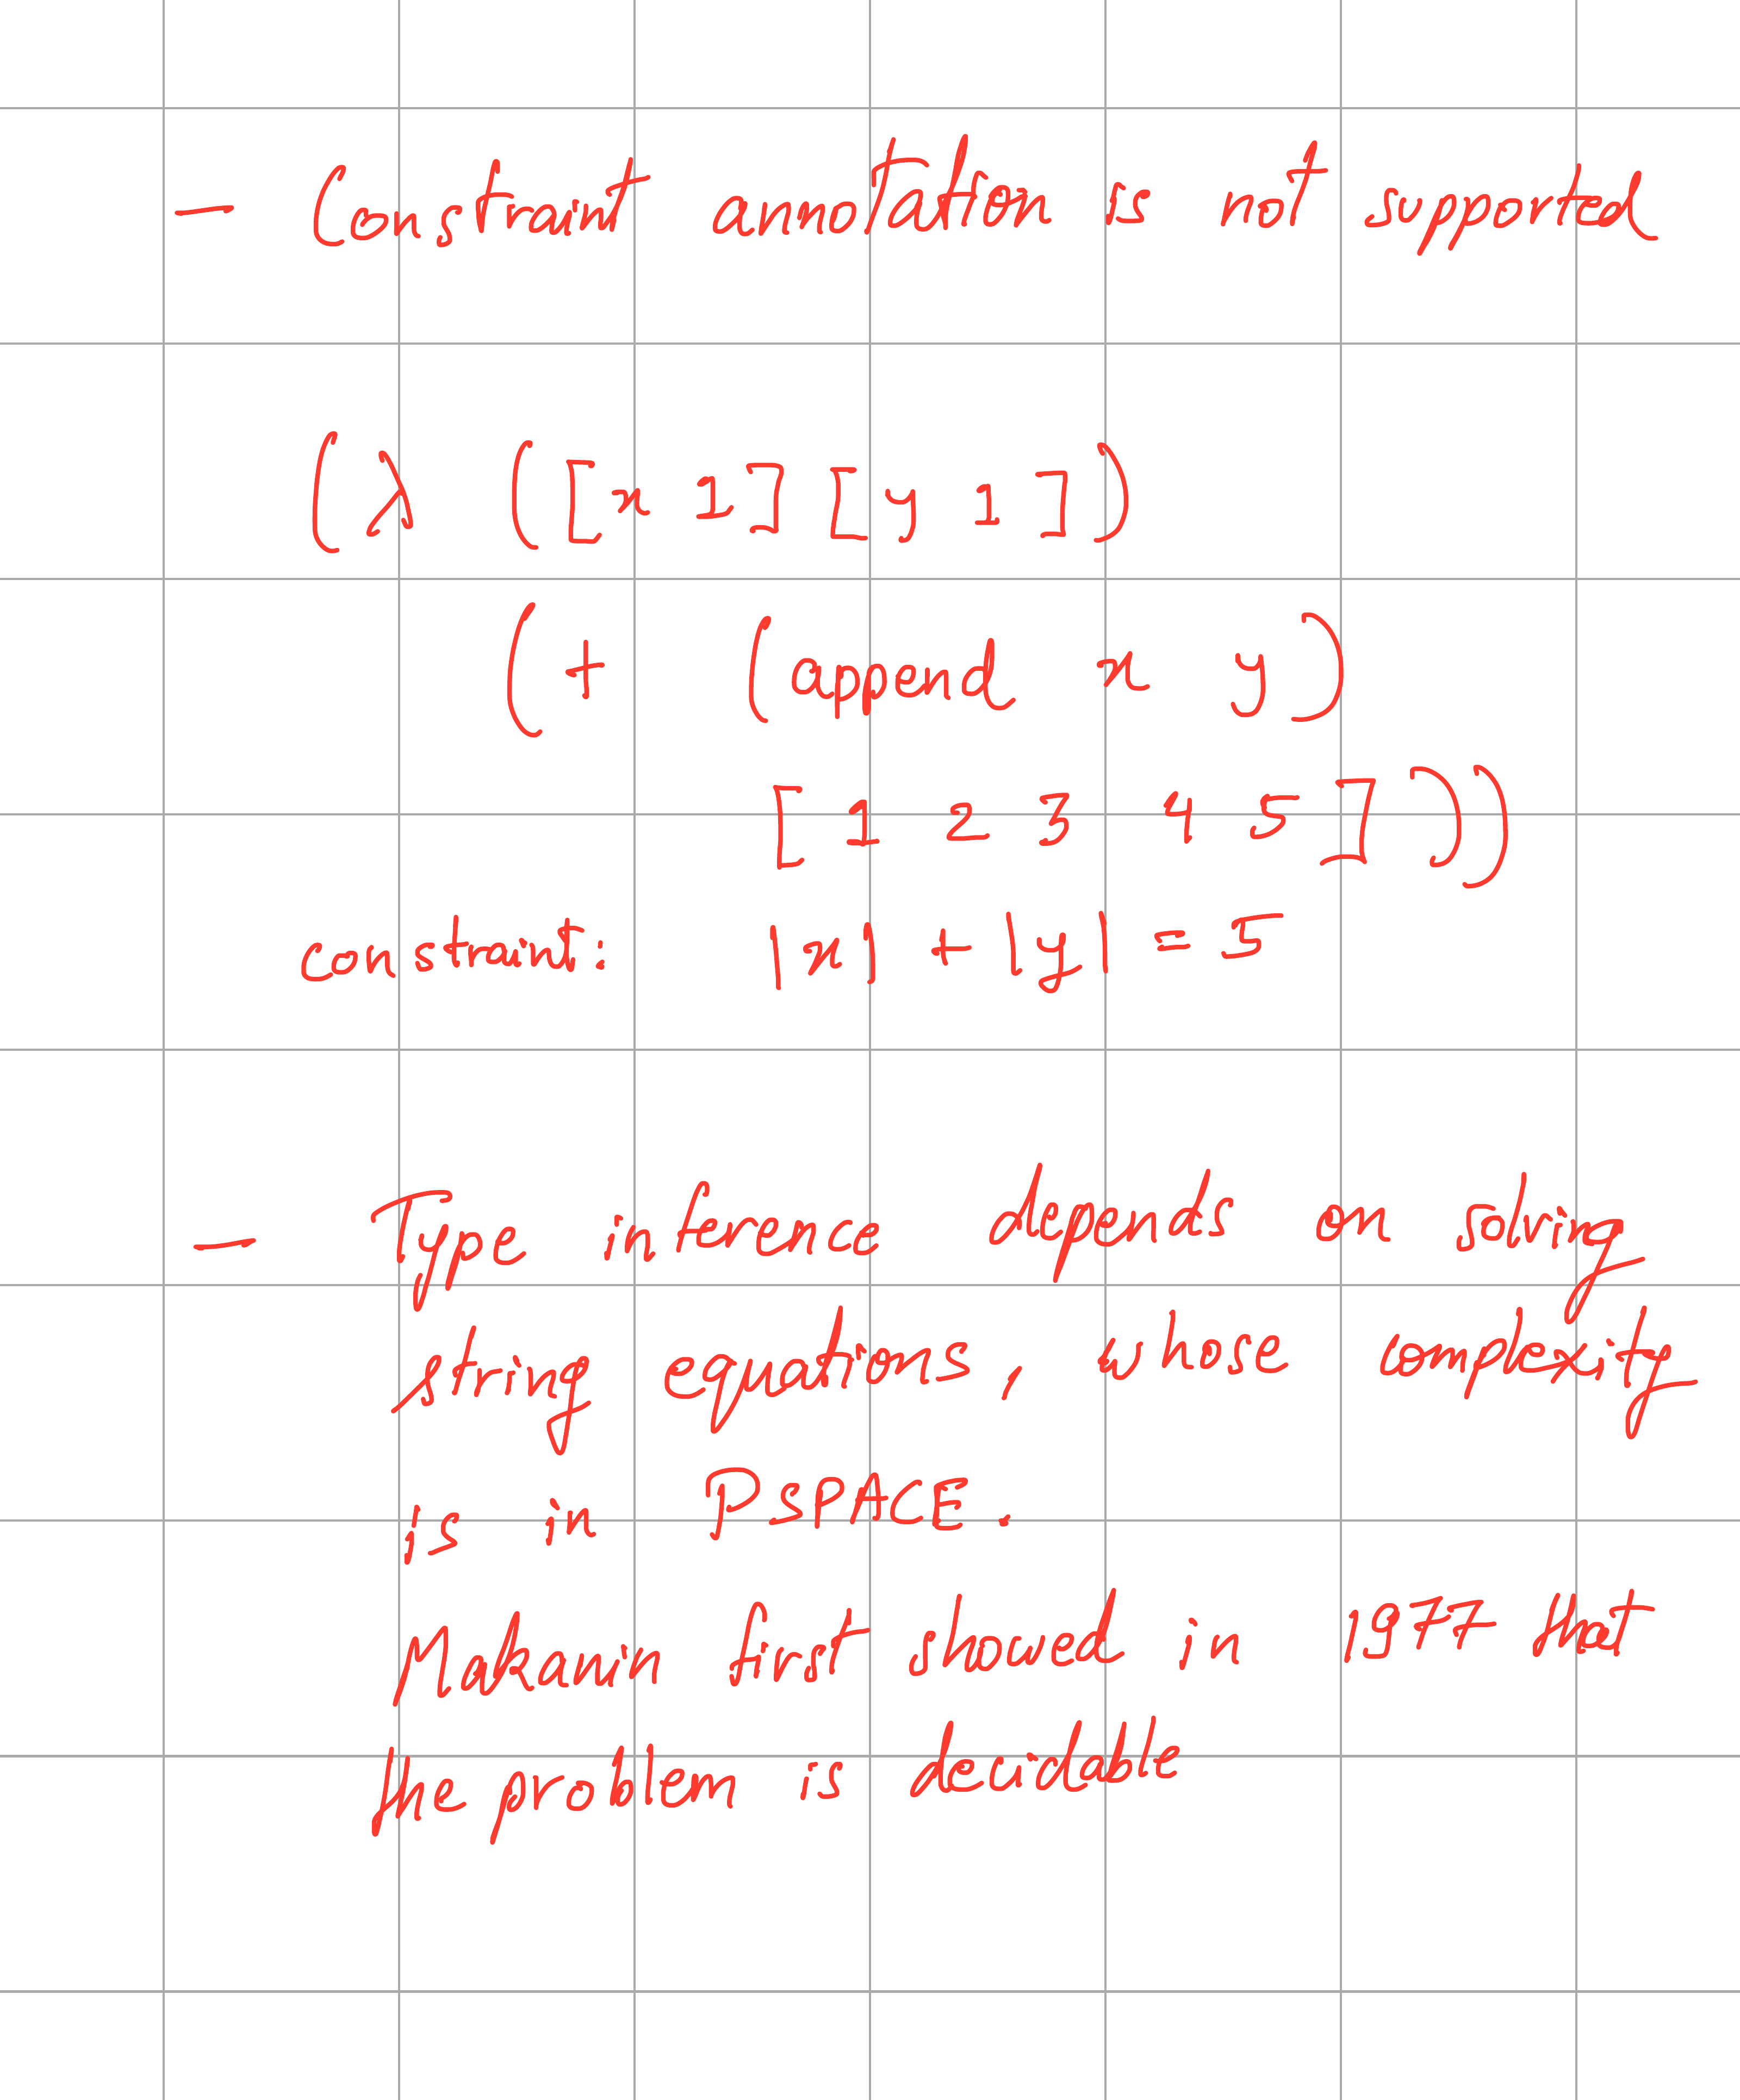 - Constraint annotation is not supported
(λ ([x 1] [y 1])
(+ (append x y)
[1 2 3 4 5]))
constraint: |x| + |y| = 5
- Type inference depends on solving
string equations, whose complexity
is in PSPACE.
Makanin first showed in 1977 that
the problem is decidable